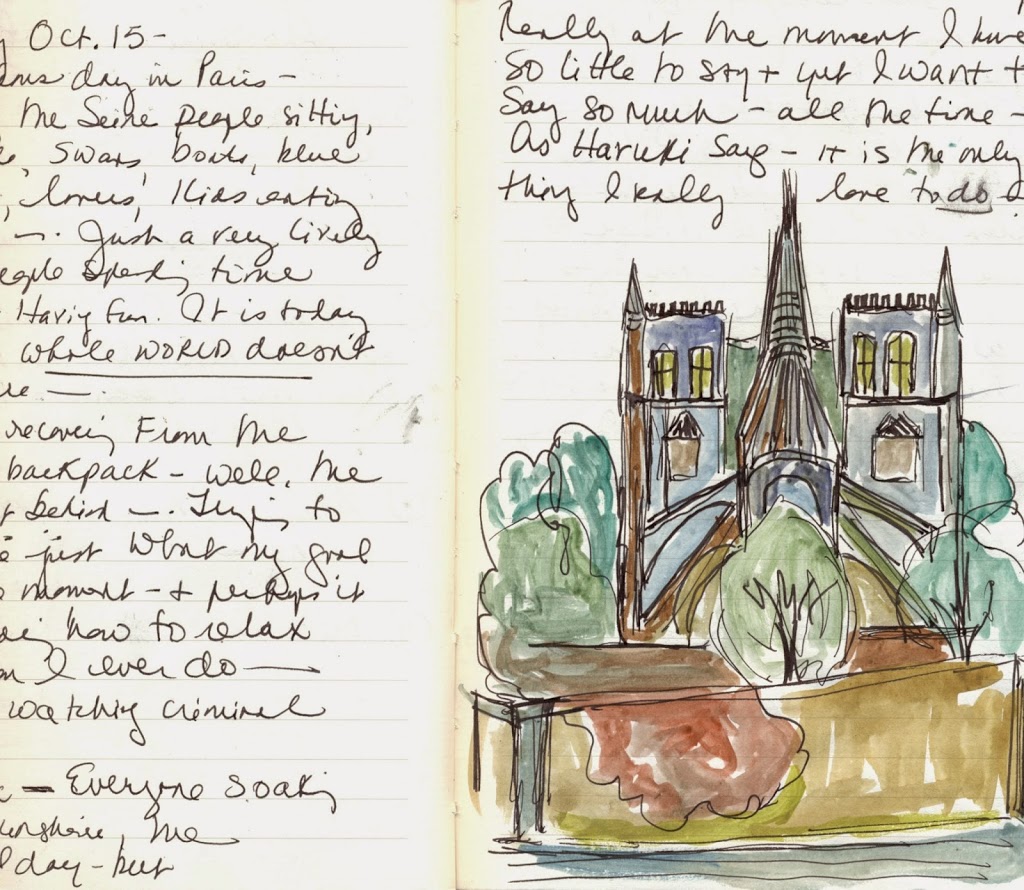 Oct. 15-
day in Paris -
the Seine people sitting,
Swans, boats, blue
, lovers, Kids eating
—. Just a very lively
people spending time
Having fun. It is today
whole WORLD doesn't
—.
recovering From the
backpack - well, the
behind —. Trying to
just what my goal
moment - + perhaps it
how to relax
I ever do —
watching criminal
— Everyone soaking
sunshine, the
day - but
Really at the moment I have
So little to say + yet I want t
Say so much - all the time -
As Haruki Says - it is the only
thing I really love to do